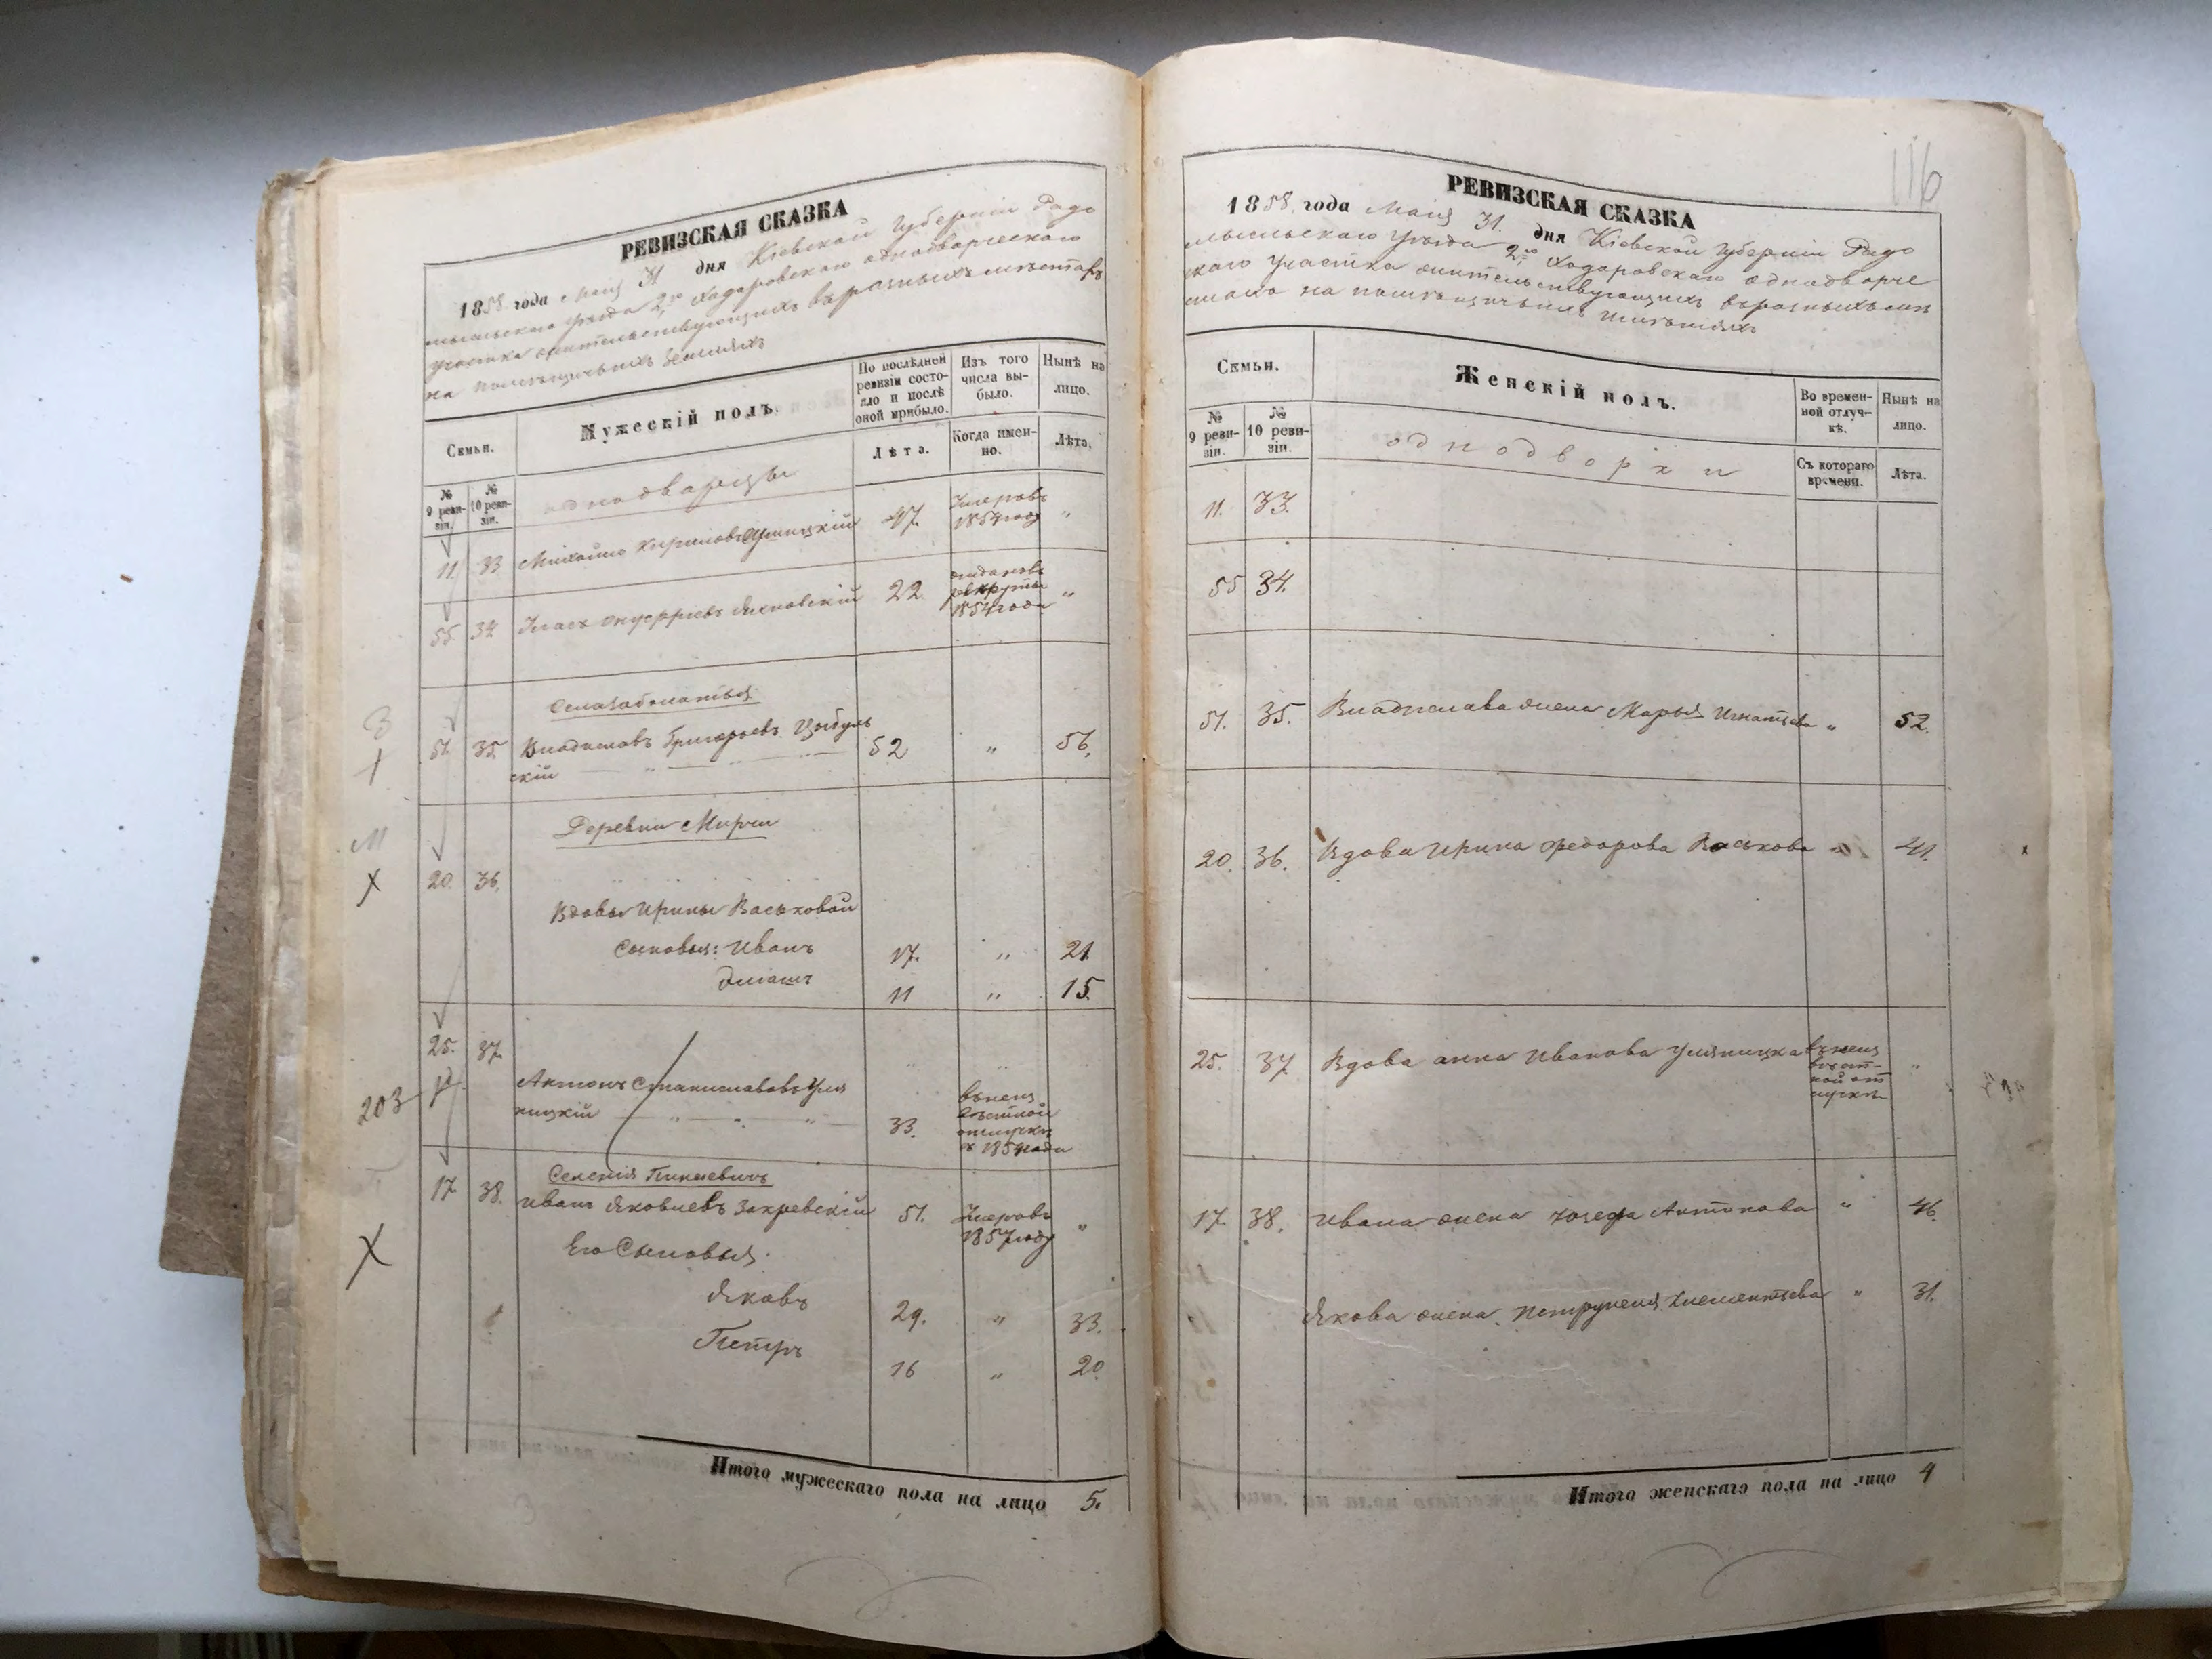 РЕВИЗСКАЯ СКАЗКА
1858 года Маия 31 дня Кіевской Губерніи Радо
мысльскаго уезда 2го Ходоровскаго однодворческаго
участка жительствующихъ въ разныхъ местахъ
на помѣщичьихъ земляхъ
Семьи.
Мужескій полъ.
По послѣдней ревизіи состояло и послѣ оной прибыло.
Изъ того числа выбыло.
Нынѣ на лицо.
№ 9 ревизіи.
№ 10 ревизіи.
однодворцы
Лѣта.
Когда именно.
Лѣта.
11 33 Михайло Кириловъ 47. Умеръ въ 1854 году "
55 34 Онуфріевъ Яхновскій 22 отданъ въ рекруты 1854 года "
З
51. 35 Владиславъ Григорьевъ Цыбульскій 52 " 56.
М
Деревни Мирчи
Х 20. 36.
Вдовы Ирины Васьковой
Сыновья: Иванъ 17. " 21
11 " 15.
25. 37.
203 Антонъ Станиславовъ Уляницкій 33. отлучкѣ
17 38. Иванъ Яковлевъ Закревскій 51. Умеръ въ 1857 году "
Х Его Сыновья:
Яковъ 29. " 33.
Петръ 16 " 20
Итого мужескаго пола на лицо 5.
116
РЕВИЗСКАЯ СКАЗКА
1858 года Маия 31. дня Кіевской Губерніи Радо
мысльскаго уезда 2го Ходоровскаго однодворче
скаго участка жительствующихъ въ разныхъ мѣ
на помѣщичьихъ
Семьи.
Женскій полъ.
Во временной отлучкѣ.
Нынѣ на лицо.
№ 9 ревизіи.
№ 10 ревизіи.
однодворки
Съ котораго времени.
Лѣта.
11. 33.
55 34.
51. 35. Владислава жена Марья Игнатьева " 52.
20. 36. Вдова Ирина Федорова Васькова " 41.
25. 37 Вдова Анна Иванова Уляницка "
17. 38. Ивана жена Юзефа Антонова " 46.
Якова жена Петрунеля Клементьева " 31.
Итого женскаго пола на лицо 4